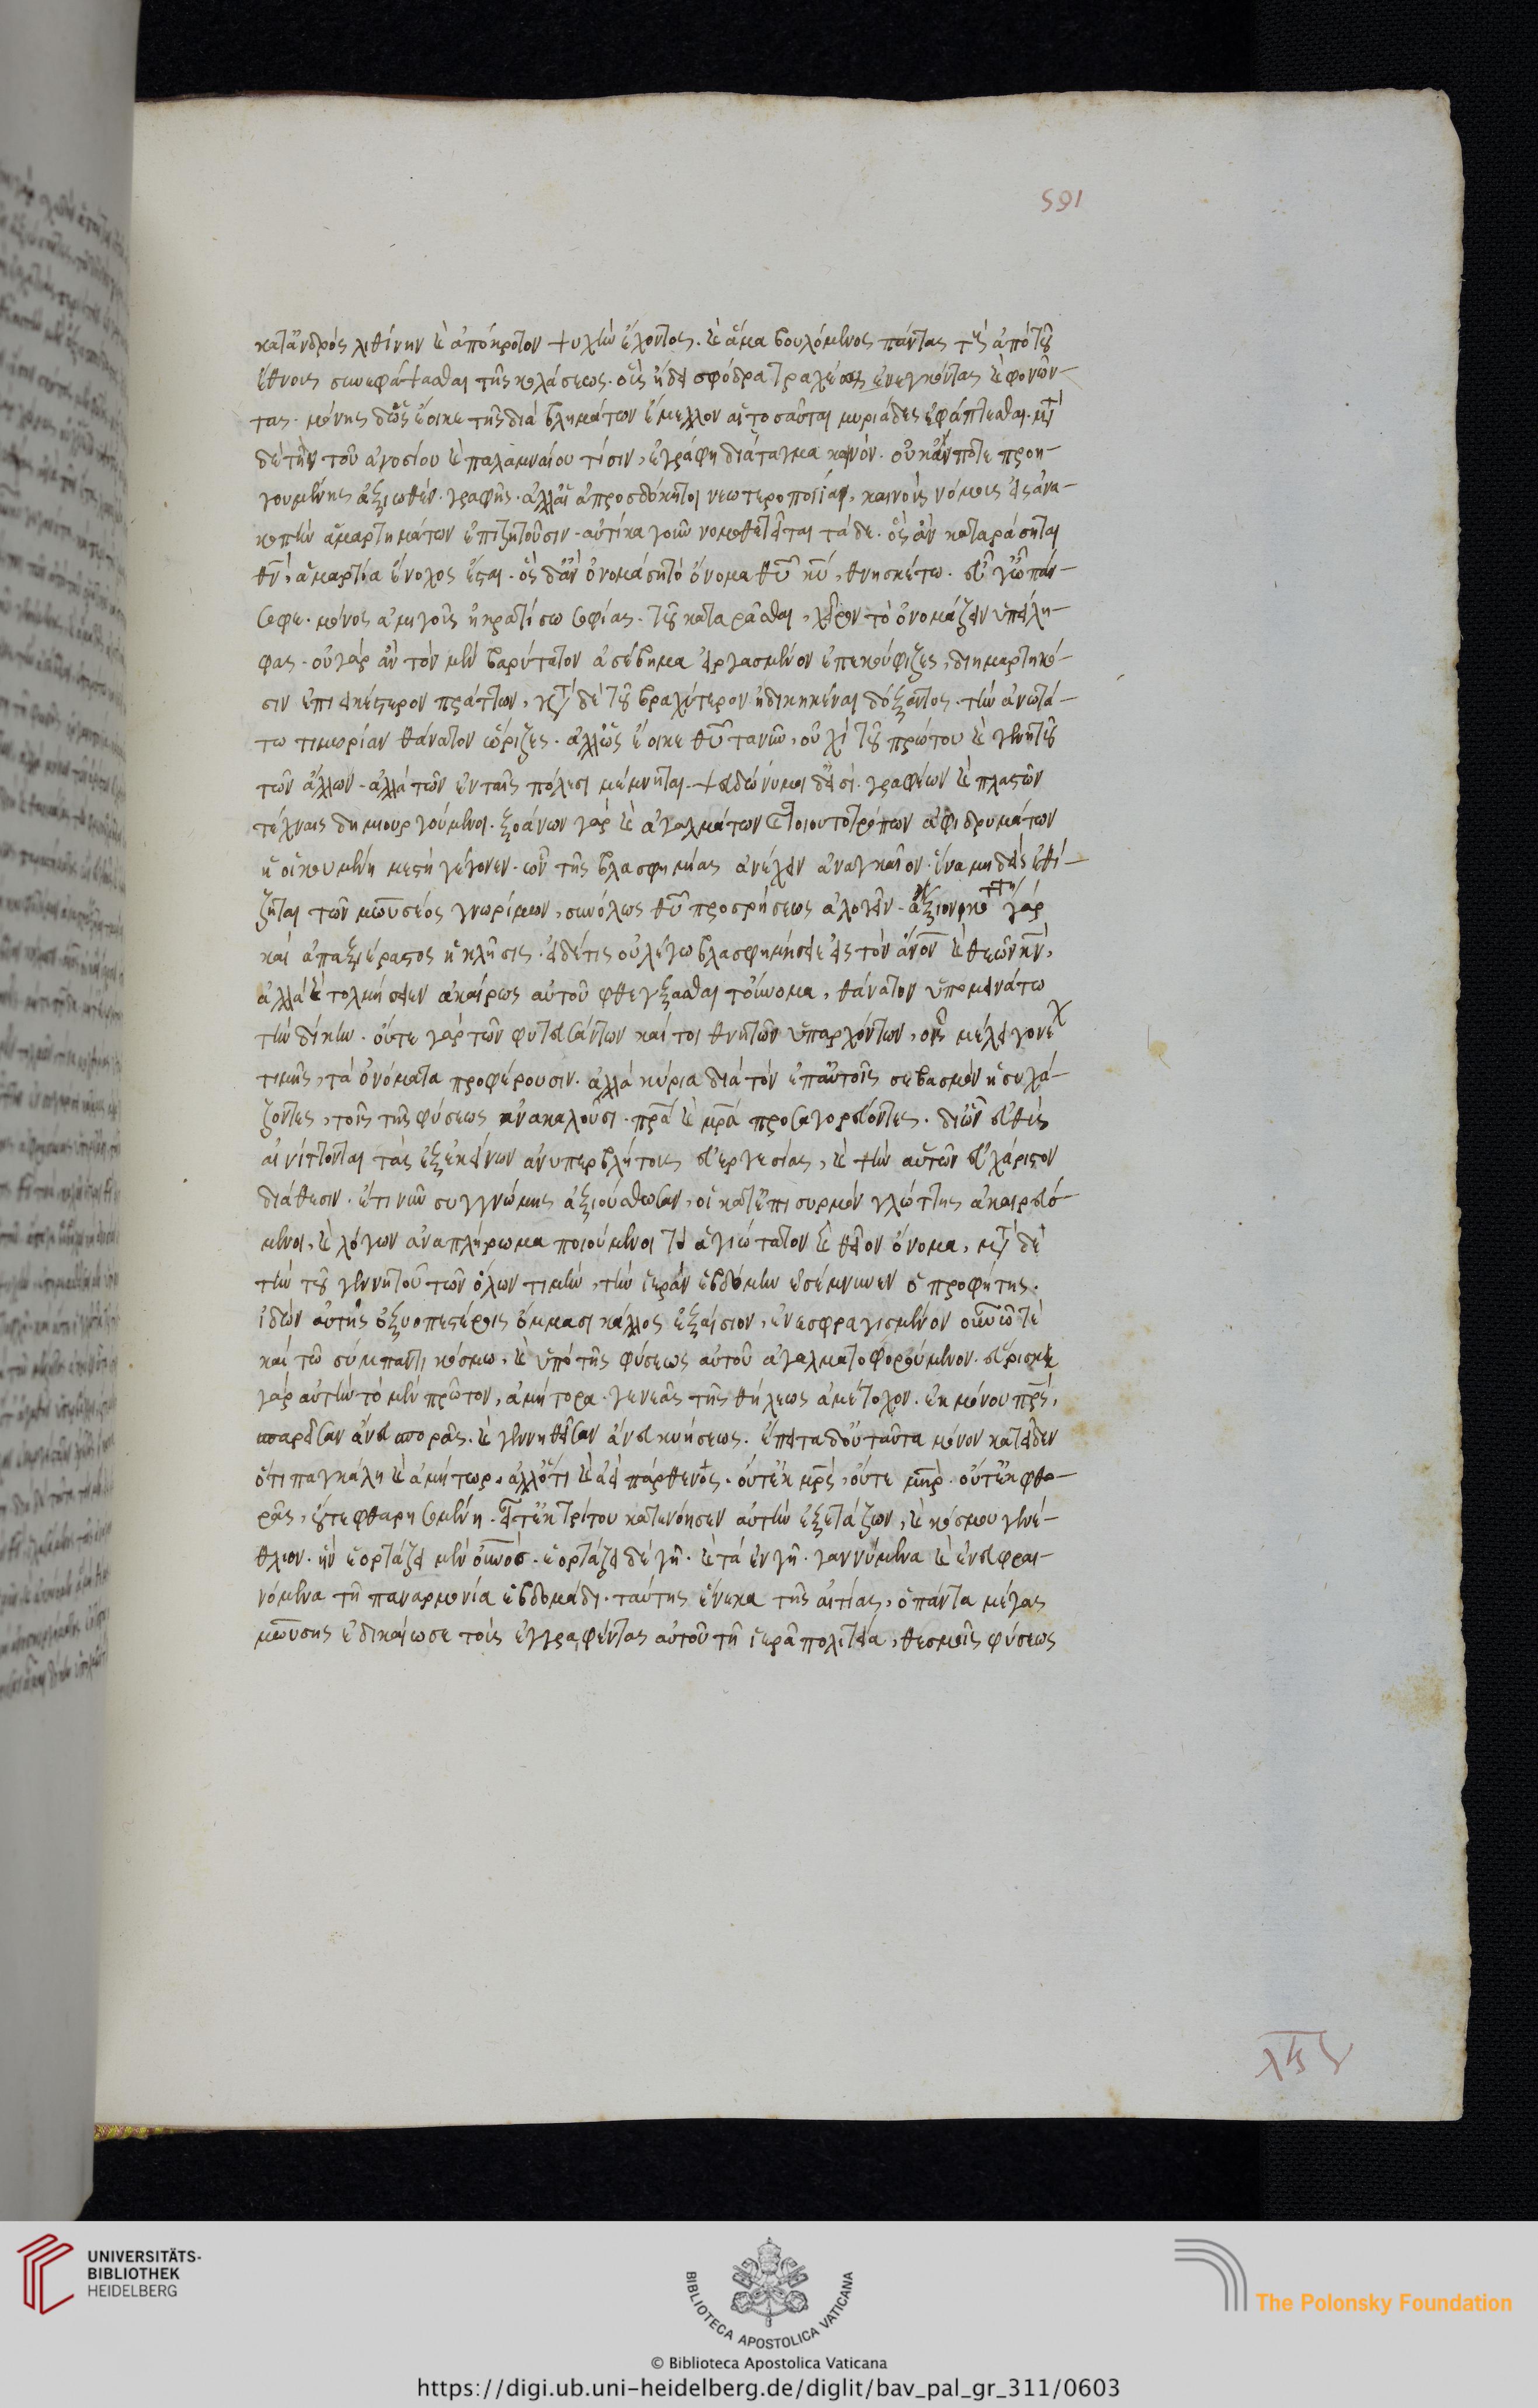 591
κατ' ἀνδρὸς λιθίνην καὶ ἀπόκροτον ψυχὴν ἔχοντος. καὶ ἅμα βουλόμενος πάντας τοὺς ἀπὸ τοῦ
ἔθνους συνεφάψασθαι τῆς κολάσεως. οἷς ἤδη σφόδρα τραχέως ἐνεγκόντας καὶ φονῶν-
τας. μόνης δ' ὡς ἔοικε τῆς διὰ βλημάτων ἔμελλον αἱ τοσαῦται μυριάδες ἐφάπτεσθαι. μετὰ
δὲ τὴν τοῦ ἀνοσίου καὶ παλαμναίου τίσιν, ἐγράφη διάταγμα καινόν. οὐκ ἄν ποτε προη-
γουμένης ἀξιωθὲν γραφῆς. ἀλλ' αἱ ἀπροσδόκητοι νεωτεροποιίαι, καινοὺς νόμους εἰς ἀνα-
κοπὴν ἁμαρτημάτων ἐπιζητοῦσιν. αὐτίκα γοῦν νομοθετεῖται τάδε. ὃς ἂν καταράσηται
θν, ἁμαρτία ἔνοχος ἔσται. ὃς δ' ἂν ὀνομάση τὸ ὄνομα θυ κυ, θνησκέτω. εὖ γ' ὦ πάν-
σοφε. μόνος ἀμιγοῦς ἠκρατίσω σοφίας. τοῦ καταρᾶσθαι, χεῖρον τὸ ὀνομάζειν ὑπείλη-
φας. οὐ γὰρ ἂν τὸν μὲν βαρύτατον ἀσέβημα εἰργασμένον ἐπεκούφιζες, διημαρτηκό-
σιν ἐπιεικέστερον πράττων, κατὰ δὲ τοῦ βραχύτερον ἠδικηκέναι δόξαντος. τὴν ἀνωτά-
τω τιμωρίαν θάνατον ὥριζες. ἀλλ' ὡς ἔοικε θυ τανῦν, οὐχὶ τοῦ πρώτου καὶ γεννητοῦ
τῶν ἄλλων. ἀλλὰ τῶν ἐν ταῖς πόλεσι μέμνηται. ψευδώνυμοι δ' εἰσὶ. γραφέων καὶ πλαστῶν
τέχναις δημιουργούμενοι. ξοάνων γὰρ καὶ ἀγαλμάτων καὶ τοιουτοτρόπων ἀφιδρυμάτων
ἡ οἰκουμένη μεστὴ γέγονεν. ὧν τῆς βλασφημίας ἀνέχειν ἀναγκαῖον. ἵνα μηδεὶς ἐθί-
ζηται τῶν μωυσέος γνωρίμων, συνόλως θυ προσρήσεως ἀλογεῖν. ἀξιονικο γὰρ
καὶ ἀπαξιέραστος ἡ κλῆσις. εἰ δέ τις οὐ λέγω βλασφημήσειε εἰς τὸν ἀνον καὶ θεῶν κν,
ἀλλὰ καὶ τολμήσειεν ἀκαίρως αὐτοῦ φθέγξασθαι τοὔνομα, θάνατον ὑπομεινάτω
τὴν δίκην. οὔτε γὰρ τῶν φυτευσάντων καί τοι θνητῶν ὑπαρχόντων, οἷς μέλει γονε
τιμῆς, τὰ ὀνόματα προφέρουσιν. ἀλλὰ κύρια διὰ τὸν ἐπ' αὐτοῖς σεβασμὸν ἡσυχά-
ζοντες, τοῖς τῆς φύσεως ἀνακαλοῦσι. πρα καὶ μρα προσαγορεύοντες. δι' ὧν εὐθὺς
αἰνίττονται τὰς ἐξ ἐκείνων ἀνυπερβλήτους εὐεργεσίας, καὶ τὴν αὑτῶν εὐχάριστον
διάθεσιν. ἔτι νῦν συγγνώμης ἀξιούσθωσαν, οἱ κατ' ἐπισυρμὸν γλώττης ἀκαιρευό-
μενοι, καὶ λόγων ἀναπλήρωμα ποιούμενοι τὸ ἁγιώτατον καὶ θεῖον ὄνομα, μετὰ δὲ
τὴν τοῦ γεννητοῦ τῶν ὅλων τιμὴν, τὴν ἱερὰν ἑβδόμην ἐσέμνυνεν ὁ προφήτης.
ἰδὼν αὐτῆς ὀξυοπεστέροις ὄμμασι κάλλος ἐξαίσιον, ἐνεσφραγισμένον οὐνῶ τὲ
καὶ τῶ σύμπαντι κόσμω, καὶ ὑπὸ τῆς φύσεως αὐτοῦ ἀγαλματοφορούμενον. εὕρισκε
γὰρ αὐτὴν τὸ μὲν πρῶτον, ἀμήτορα. γενεᾶς τῆς θήλεως ἀμέτοχον. ἐκ μόνου πρς,
σπαρεῖσαν ἄνευ σπορᾶς. καὶ γεννηθεῖσαν ἄνευ κυήσεως. ἔπειτα δ' οὐ ταῦτα μόνον κατεῖδεν
ὅτι παγκάλη καὶ ἀμήτωρ. ἀλλ' ὅτι καὶ ἀεὶ πάρθενος. οὔτ' ἐκ μρς, οὔτε μηρ. οὔτ' ἐκ φθο-
ρᾶς, οὔτε φθαρησομένη. εἶτ' ἐκ τρίτου κατενόησεν αὐτὴν ἐξετάζων, καὶ κόσμου γενέ-
θλιον. ἣν ἑορτάζει μὲν οὐνοσ. ἑορτάζει δὲ γῆ. καὶ τὰ ἐν γῆ. γαννύμενα καὶ ἐνευφραι-
νόμενα τῆ παναρμονία ἑβδομάδι. ταύτης ἕνεκα τῆς αἰτίας, ὁ πάντα μέγας
μωυσης ἐδικαίωσε τοὺς ἐγγραφέντας αὐτοῦ τῆ ἱερᾶ πολιτεία, θεσμοῖς φύσεως
UNIVERSITÄTS-
BIBLIOTHEK
HEIDELBERG
BIBLIOTECA APOSTOLICA VATICANA
The Polonsky Foundation
© Biblioteca Apostolica Vaticana
https://digi.ub.uni-heidelberg.de/diglit/bav_pal_gr_311/0603